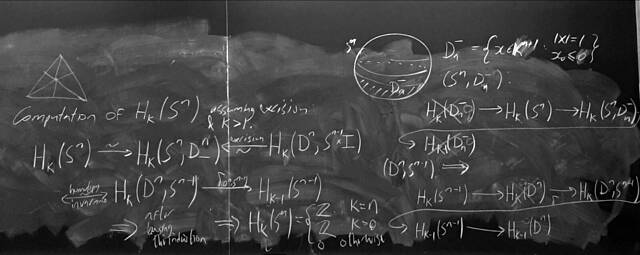 Computation of H_k(S^n) assuming excision & k > 1.
H_k(S^n) →~ H_k(S^n, D_-^n) ←~ excision H_k(D^n, S^{n-1}×I)
⟷ homotopy invariance H_k(D^n, S^{n-1}) → H_{k-1}(S^{n-1})
⇒ after using induction ⇒ H_k(S^n) = { Z k=n
Z k=0
0 otherwise
S^n D_n^- D_n^- = { x ∈ R^{n+1} : |x|=1 x_0 ≤ 0 }
(S^n, D_n^-) :
H_k(D_n^-) → H_k(S^n) → H_k(S^n, D_n^-)
H_{k-1}(D_n^-)
(D^n, S^{n-1}) ⇒
H_k(S^{n-1}) → H_k(D^n) → H_k(D^n, S^{n-1})
H_{k-1}(S^{n-1}) → H_{k-1}(D^n)